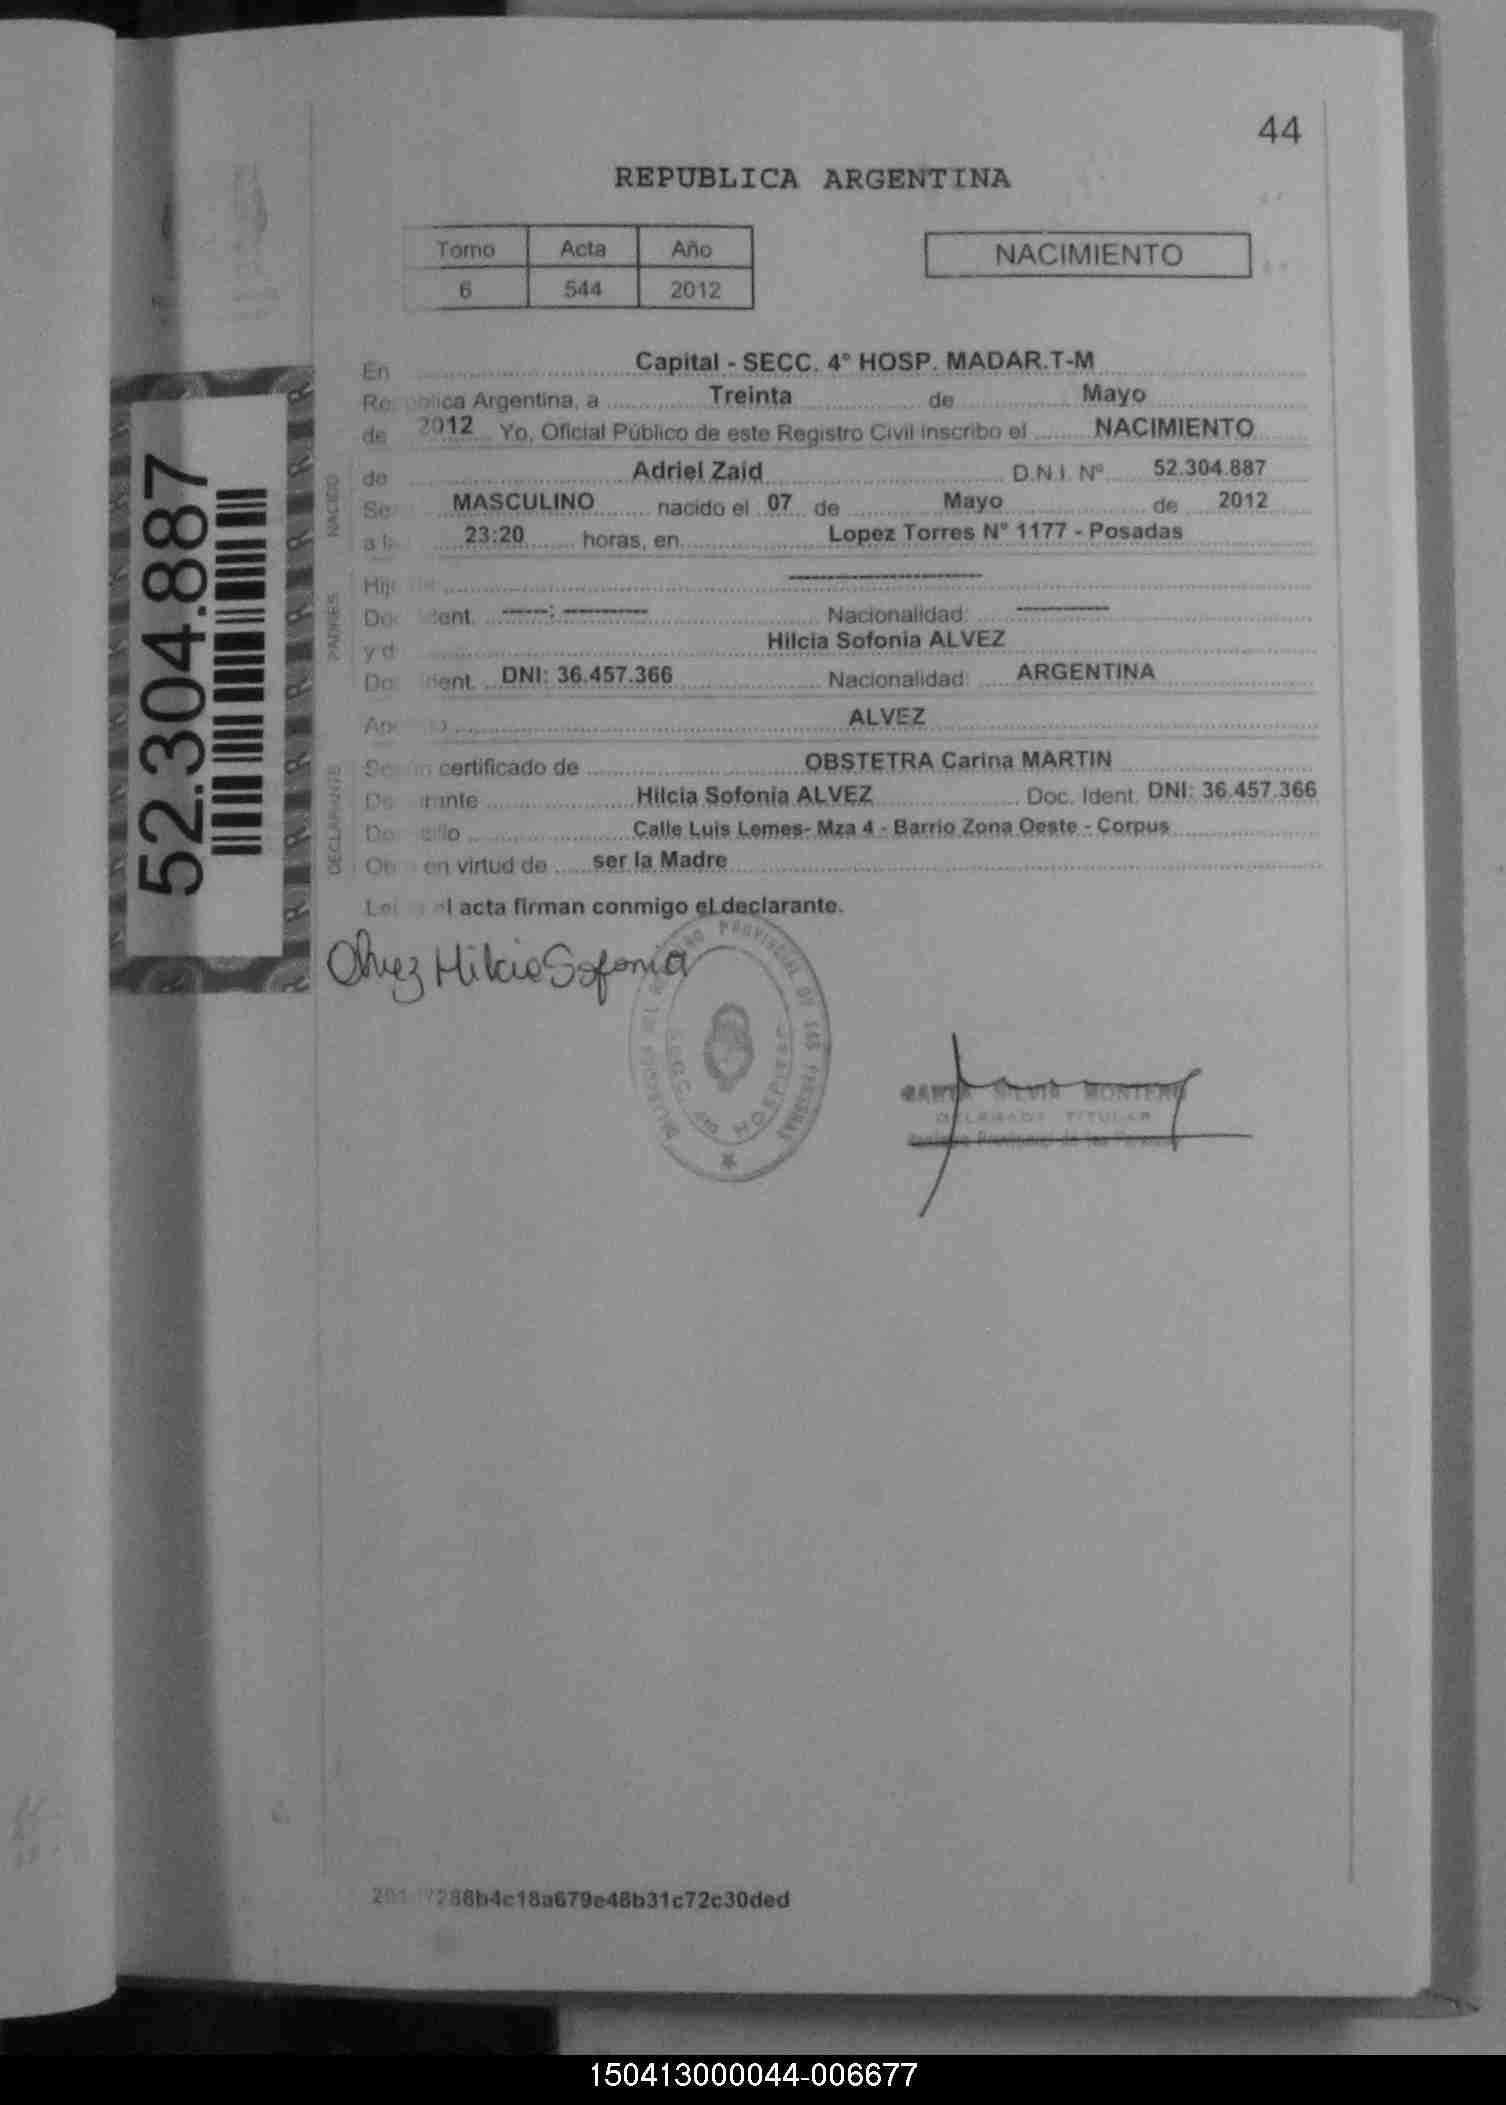 44
REPUBLICA ARGENTINA
Tomo Acta Año
6 544 2012
NACIMIENTO
52.304.887
En Capital - SECC. 4° HOSP. MADAR.T-M
República Argentina, a Treinta de Mayo
de 2012 Yo, Oficial Público de este Registro Civil inscribo el NACIMIENTO
NACIDO
de Adriel Zaid D.N.I. Nº 52.304.887
Se MASCULINO nacido el 07 de Mayo de 2012
a la 23:20 horas, en Lopez Torres N° 1177 - Posadas
PADRES
Hij ------------------
Doc ident. -----: --------- Nacionalidad: ----------
y d Hilcia Sofonia ALVEZ
Doc ident. DNI: 36.457.366 Nacionalidad: ARGENTINA
ALVEZ
DECLARANTE
certificado de OBSTETRA Carina MARTIN
Hilcia Sofonia ALVEZ Doc. Ident. DNI: 36.457.366
Calle Luis Lemes- Mza 4 - Barrio Zona Oeste - Corpus
en virtud de ser la Madre
acta firman conmigo el declarante.
Alvez Hilcia Sofonia
PROVINCIAL DE LAS PERSONAS
SECC. 4º HOSPITAL
SILVIA MONTERO
DELEGADA TITULAR
Provincial de las Personas
288b4c18a679e48b31c72c30ded
150413000044-006677